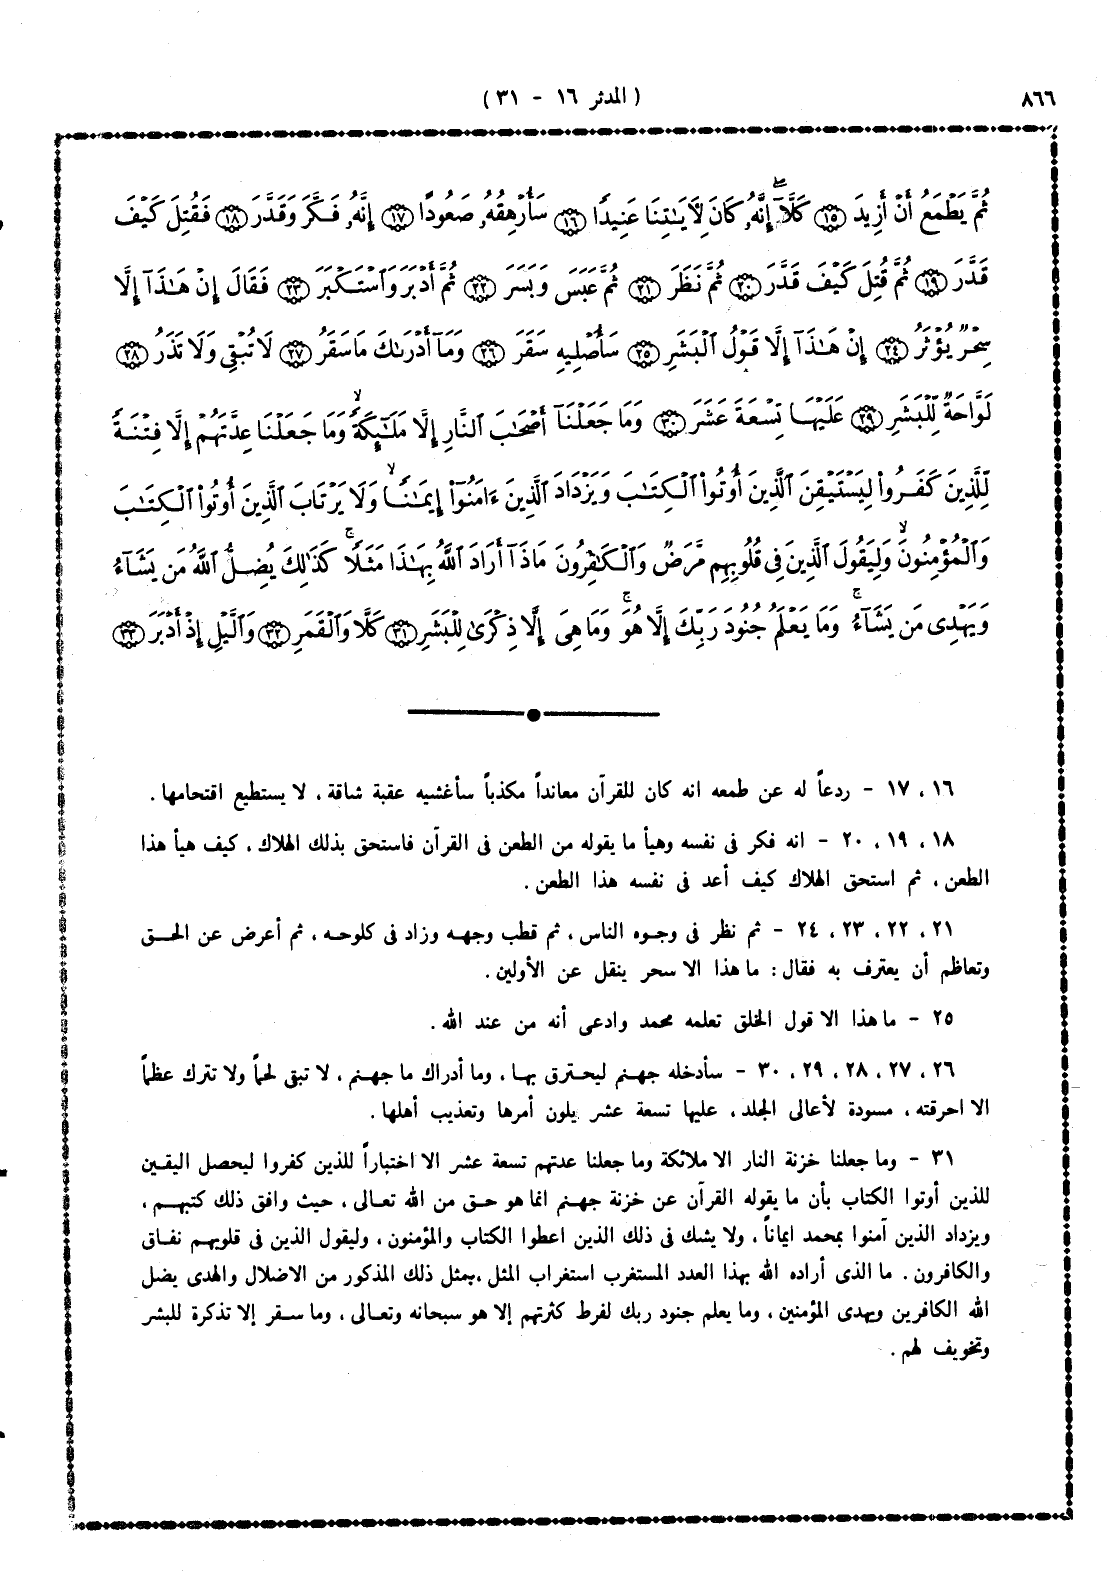 ٨٦٦
( المدثر ١٦ - ٣١ )
ثُمَّ يَطْمَعُ أَنْ أَزِيدَ ١٥ كَلَّآ إِنَّهُۥ كَانَ لِأَيَٰتِنَا عَنِيدًا ١٦ سَأُرْهِقُهُۥ صَعُودًا ١٧ إِنَّهُۥ فَكَّرَ وَقَدَّرَ ١٨ فَقُتِلَ كَيْفَ
قَدَّرَ ١٩ ثُمَّ قُتِلَ كَيْفَ قَدَّرَ ٢٠ ثُمَّ نَظَرَ ٢١ ثُمَّ عَبَسَ وَبَسَرَ ٢٢ ثُمَّ أَدْبَرَ وَٱسْتَكْبَرَ ٢٣ فَقَالَ إِنْ هَٰذَآ إِلَّا
سِحْرٌ يُؤْثَرُ ٢٤ إِنْ هَٰذَآ إِلَّا قَوْلُ ٱلْبَشَرِ ٢٥ سَأُصْلِيهِ سَقَرَ ٢٦ وَمَآ أَدْرَىٰكَ مَا سَقَرُ ٢٧ لَا تُبْقِى وَلَا تَذَرُ ٢٨
لَوَّاحَةٌ لِّلْبَشَرِ ٢٩ عَلَيْهَا تِسْعَةَ عَشَرَ ٣٠ وَمَا جَعَلْنَآ أَصْحَٰبَ ٱلنَّارِ إِلَّا مَلَٰٓئِكَةً ۙ وَمَا جَعَلْنَا عِدَّتَهُمْ إِلَّا فِتْنَةً
لِّلَّذِينَ كَفَرُوا۟ لِيَسْتَيْقِنَ ٱلَّذِينَ أُوتُوا۟ ٱلْكِتَٰبَ وَيَزْدَادَ ٱلَّذِينَ ءَامَنُوٓا۟ إِيمَٰنًا ۙ وَلَا يَرْتَابَ ٱلَّذِينَ أُوتُوا۟ ٱلْكِتَٰبَ
وَٱلْمُؤْمِنُونَ ۙ وَلِيَقُولَ ٱلَّذِينَ فِى قُلُوبِهِم مَّرَضٌ وَٱلْكَٰفِرُونَ مَاذَآ أَرَادَ ٱللَّهُ بِهَٰذَا مَثَلًا ۚ كَذَٰلِكَ يُضِلُّ ٱللَّهُ مَن يَشَآءُ
وَيَهْدِى مَن يَشَآءُ ۚ وَمَا يَعْلَمُ جُنُودَ رَبِّكَ إِلَّا هُوَ ۚ وَمَا هِىَ إِلَّا ذِكْرَىٰ لِلْبَشَرِ ٣١ كَلَّا وَٱلْقَمَرِ ٣٢ وَٱلَّيْلِ إِذْ أَدْبَرَ ٣٣
١٦ ، ١٧ - ردعاً له عن طمعه انه كان للقرآن معانداً مكذباً سأغشيه عقبة شاقة ، لا يستطيع اقتحامها .
١٨ ، ١٩ ، ٢٠ - انه فكر فى نفسه وهيأ ما يقوله من الطعن فى القرآن فاستحق بذلك الهلاك ، كيف هيأ هذا
الطعن ، ثم استحق الهلاك كيف أعد فى نفسه هذا الطعن .
٢١ ، ٢٢ ، ٢٣ ، ٢٤ - ثم نظر فى وجوه الناس ، ثم قطب وجهه وزاد فى كلوحه ، ثم أعرض عن الحق
وتعاظم أن يعترف به فقال : ما هذا الا سحر ينقل عن الأولين .
٢٥ - ما هذا الا قول الخلق تعلمه محمد وادعى أنه من عند الله .
٢٦ ، ٢٧ ، ٢٨ ، ٢٩ ، ٣٠ - سأدخله جهنم ليحترق بها ، وما أدراك ما جهنم ، لا تبقى لحماً ولا تترك عظماً
الا احرقته ، مسودة لأعالى الجلد ، عليها تسعة عشر يلون أمرها وتعذيب أهلها .
٣١ - وما جعلنا خزنة النار الا ملائكة وما جعلنا عدتهم تسعة عشر الا اختباراً للذين كفروا ليحصل اليقين
للذين أوتوا الكتاب بأن ما يقوله القرآن عن خزنة جهنم انما هو حق من الله تعالى ، حيث وافق ذلك كتبهم ،
ويزداد الذين آمنوا بمحمد ايماناً ، ولا يشك فى ذلك الذين اعطوا الكتاب والمؤمنون ، وليقول الذين فى قلوبهم نفاق
والكافرون . ما الذى أراده الله بهذا العدد المستغرب استغراب المثل ، بمثل ذلك المذكور من الاضلال والهدى يضل
الله الكافرين ويهدى المؤمنين ، وما يعلم جنود ربك لفرط كثرتهم إلا هو سبحانه وتعالى ، وما سقر إلا تذكرة للبشر
وتخويف لهم .